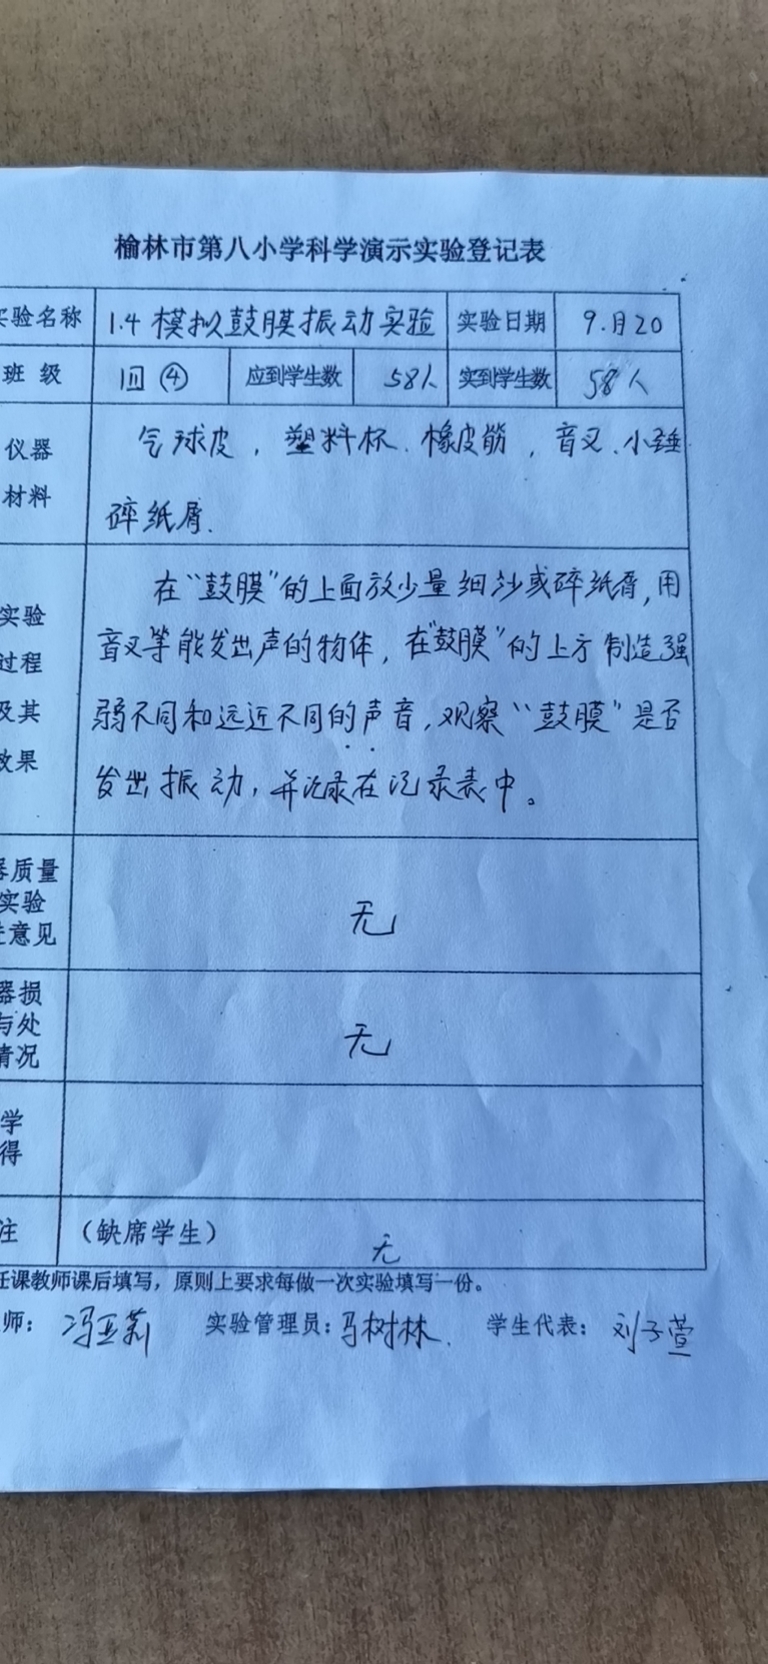 榆林市第八小学科学演示实验登记表
实验名称 1.4 模拟鼓膜振动实验 实验日期 9.月20
班 级 四④ 应到学生数 58人 实到学生数 58人
仪器 气球皮，塑料杯、橡皮筋，音叉、小锤
材料 碎纸屑.
实验 在“鼓膜”的上面放少量细沙或碎纸屑,用
过程 音叉等能发出声的物体，在“鼓膜”的上方制造强
及其 弱不同和远近不同的声音,观察“鼓膜”是否
效果 发出振动，并记录在记录表中。
器质量
实验
意见
无
器损
与处
情况
无
学
得
注 （缺席学生） 无
任课教师课后填写，原则上要求每做一次实验填写一份。
师： 冯亚莉 实验管理员：马树林. 学生代表： 刘子萱